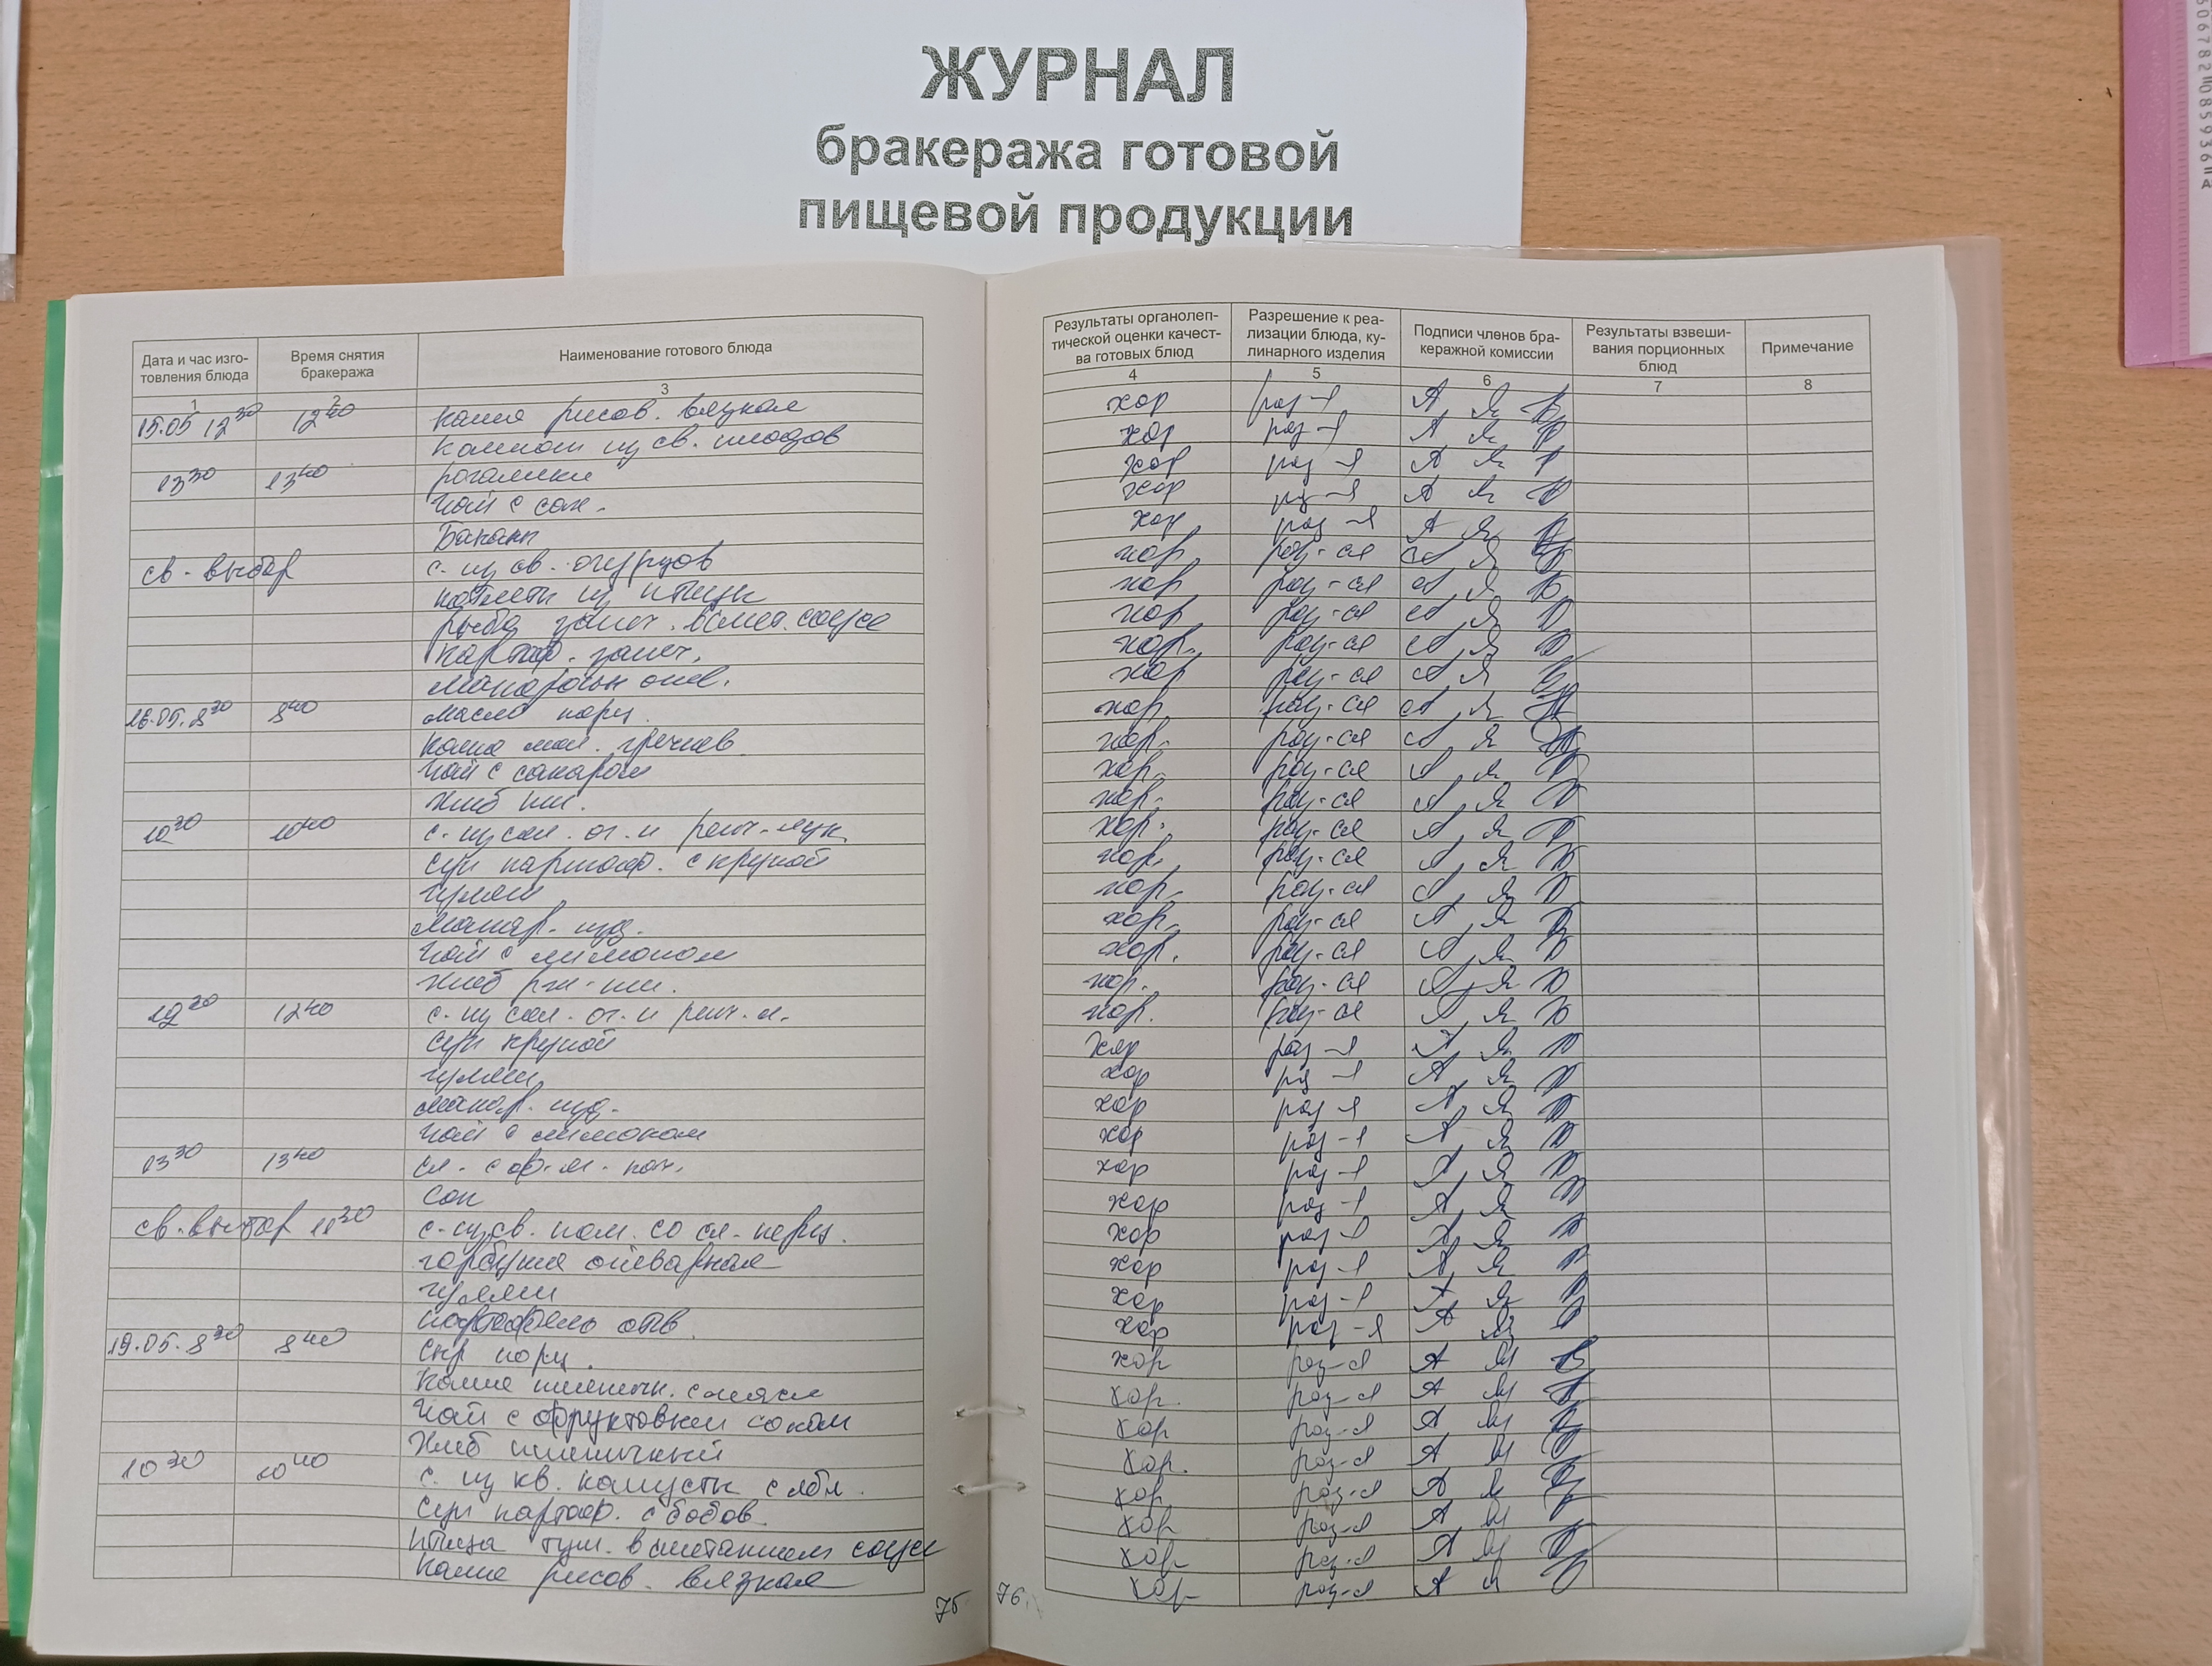 ЖУРНАЛ
бракеража готовой
пищевой продукции
Дата и час изго-
товления блюда
Время снятия
бракеража
Наименование готового блюда
Результаты органолеп-
тической оценки качест-
ва готовых блюд
Разрешение к реа-
лизации блюда, ку-
линарного изделия
Подписи членов бра-
керажной комиссии
Результаты взвеши-
вания порционных
блюд
Примечание
1 2 3 4 5 6 7 8
15.05 12 30 12 40 каша рисов. вязкая хор раз-я
компот из св. плодов хор раз-я
13 30 13 40 рогалики хор раз-я
Чай с сах. хор раз-я
Бананы хор раз-я
св. выбор с. из св. огурцов хор раз-ся
котлеты из птицы хор раз-ся
рыба запеч. в смет. соусе хор раз-ся
картоф. запеч. хор. раз-ся
макароны отв. хор раз-ся
16.05. 8 30 8 40 масло порц. хор раз-ся
каша мол. гречнев. хор. раз-ся
Чай с сахаром хор. раз-ся
хлеб пш. хор. раз-ся
10 30 10 40 с. из сол. ог. и репч. лук хор. раз-ся
суп картоф. с крупой хор. раз-ся
гуляш хор. раз-ся
макар. изд. хор. раз-ся
Чай с лимоном хор. раз-ся
хлеб рж-пш. хор. раз-ся
12 30 12 40 с. из сол. ог. и репч. л. хор. раз-ся
суп крупой хор раз-я
гуляш хор раз-я
макар. изд. хор раз-я
Чай с лимоном хор раз-я
13 30 13 40 сл. с ф. хор раз-я
Сок хор раз-я
св. выбор 11 30 с. из св. пом. со сл. перц. хор раз-я
горбуша отварная хор раз-я
гуляш хор раз-я
картофель отв. хор раз-я
19.05. 8 30 8 40 Сыр порц. хор раз-я
Каша пшеничн. хор. раз-я
Чай с фруктовым соком хор раз-я
Хлеб пшеничный хор. раз-я
10 30 10 40 с. из кв. капусты с ябл. хор раз-я
Суп картоф. с бобов. хор раз-я
птица туш. в сметанном соусе хор раз-я
каша рисов. вязкая хор раз-я
75 76